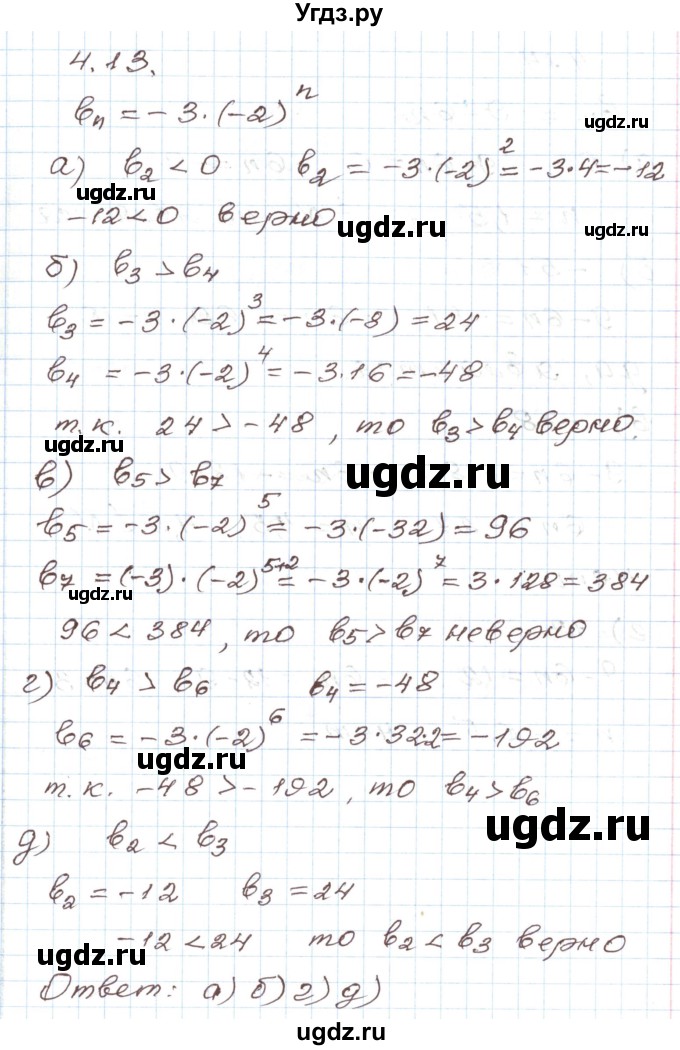 Угдз.ру
4.13.
bₙ = -3·(-2)ⁿ
ugdz.ru
а) b₂ < 0 b₂ = -3·(-2)² = -3·4 = -12
ugdz.ru
-12 < 0 верно
ugdz.ru
ugdz.ru
б) b₃ > b₄
b₃ = -3·(-2)³ = -3·(-8) = 24
b₄ = -3·(-2)⁴ = -3·16 = -48
т.к. 24 > -48, то b₃ > b₄ верно.
ugdz.ru
в) b₅ > b₇
ugdz.ru
b₅ = -3·(-2)⁵ = -3·(-32) = 96
b₇ = (-3)·(-2)⁵⁺² = -3·(-2)⁷ = 3·128 = 384
ugdz.ru
96 < 384, то b₅ > b₇ неверно
г) b₄ > b₆ b₄ = -48
b₆ = -3·(-2)⁶ = -3·32·2 = -192
ugdz.ru
т.к. -48 > -192, то b₄ > b₆
ugdz.ru
д) b₂ < b₃
b₂ = -12 b₃ = 24
-12 < 24 то b₂ < b₃ верно
ugdz.ru
Ответ: а) б) г) д)
ugdz.ru
ugdz.ru